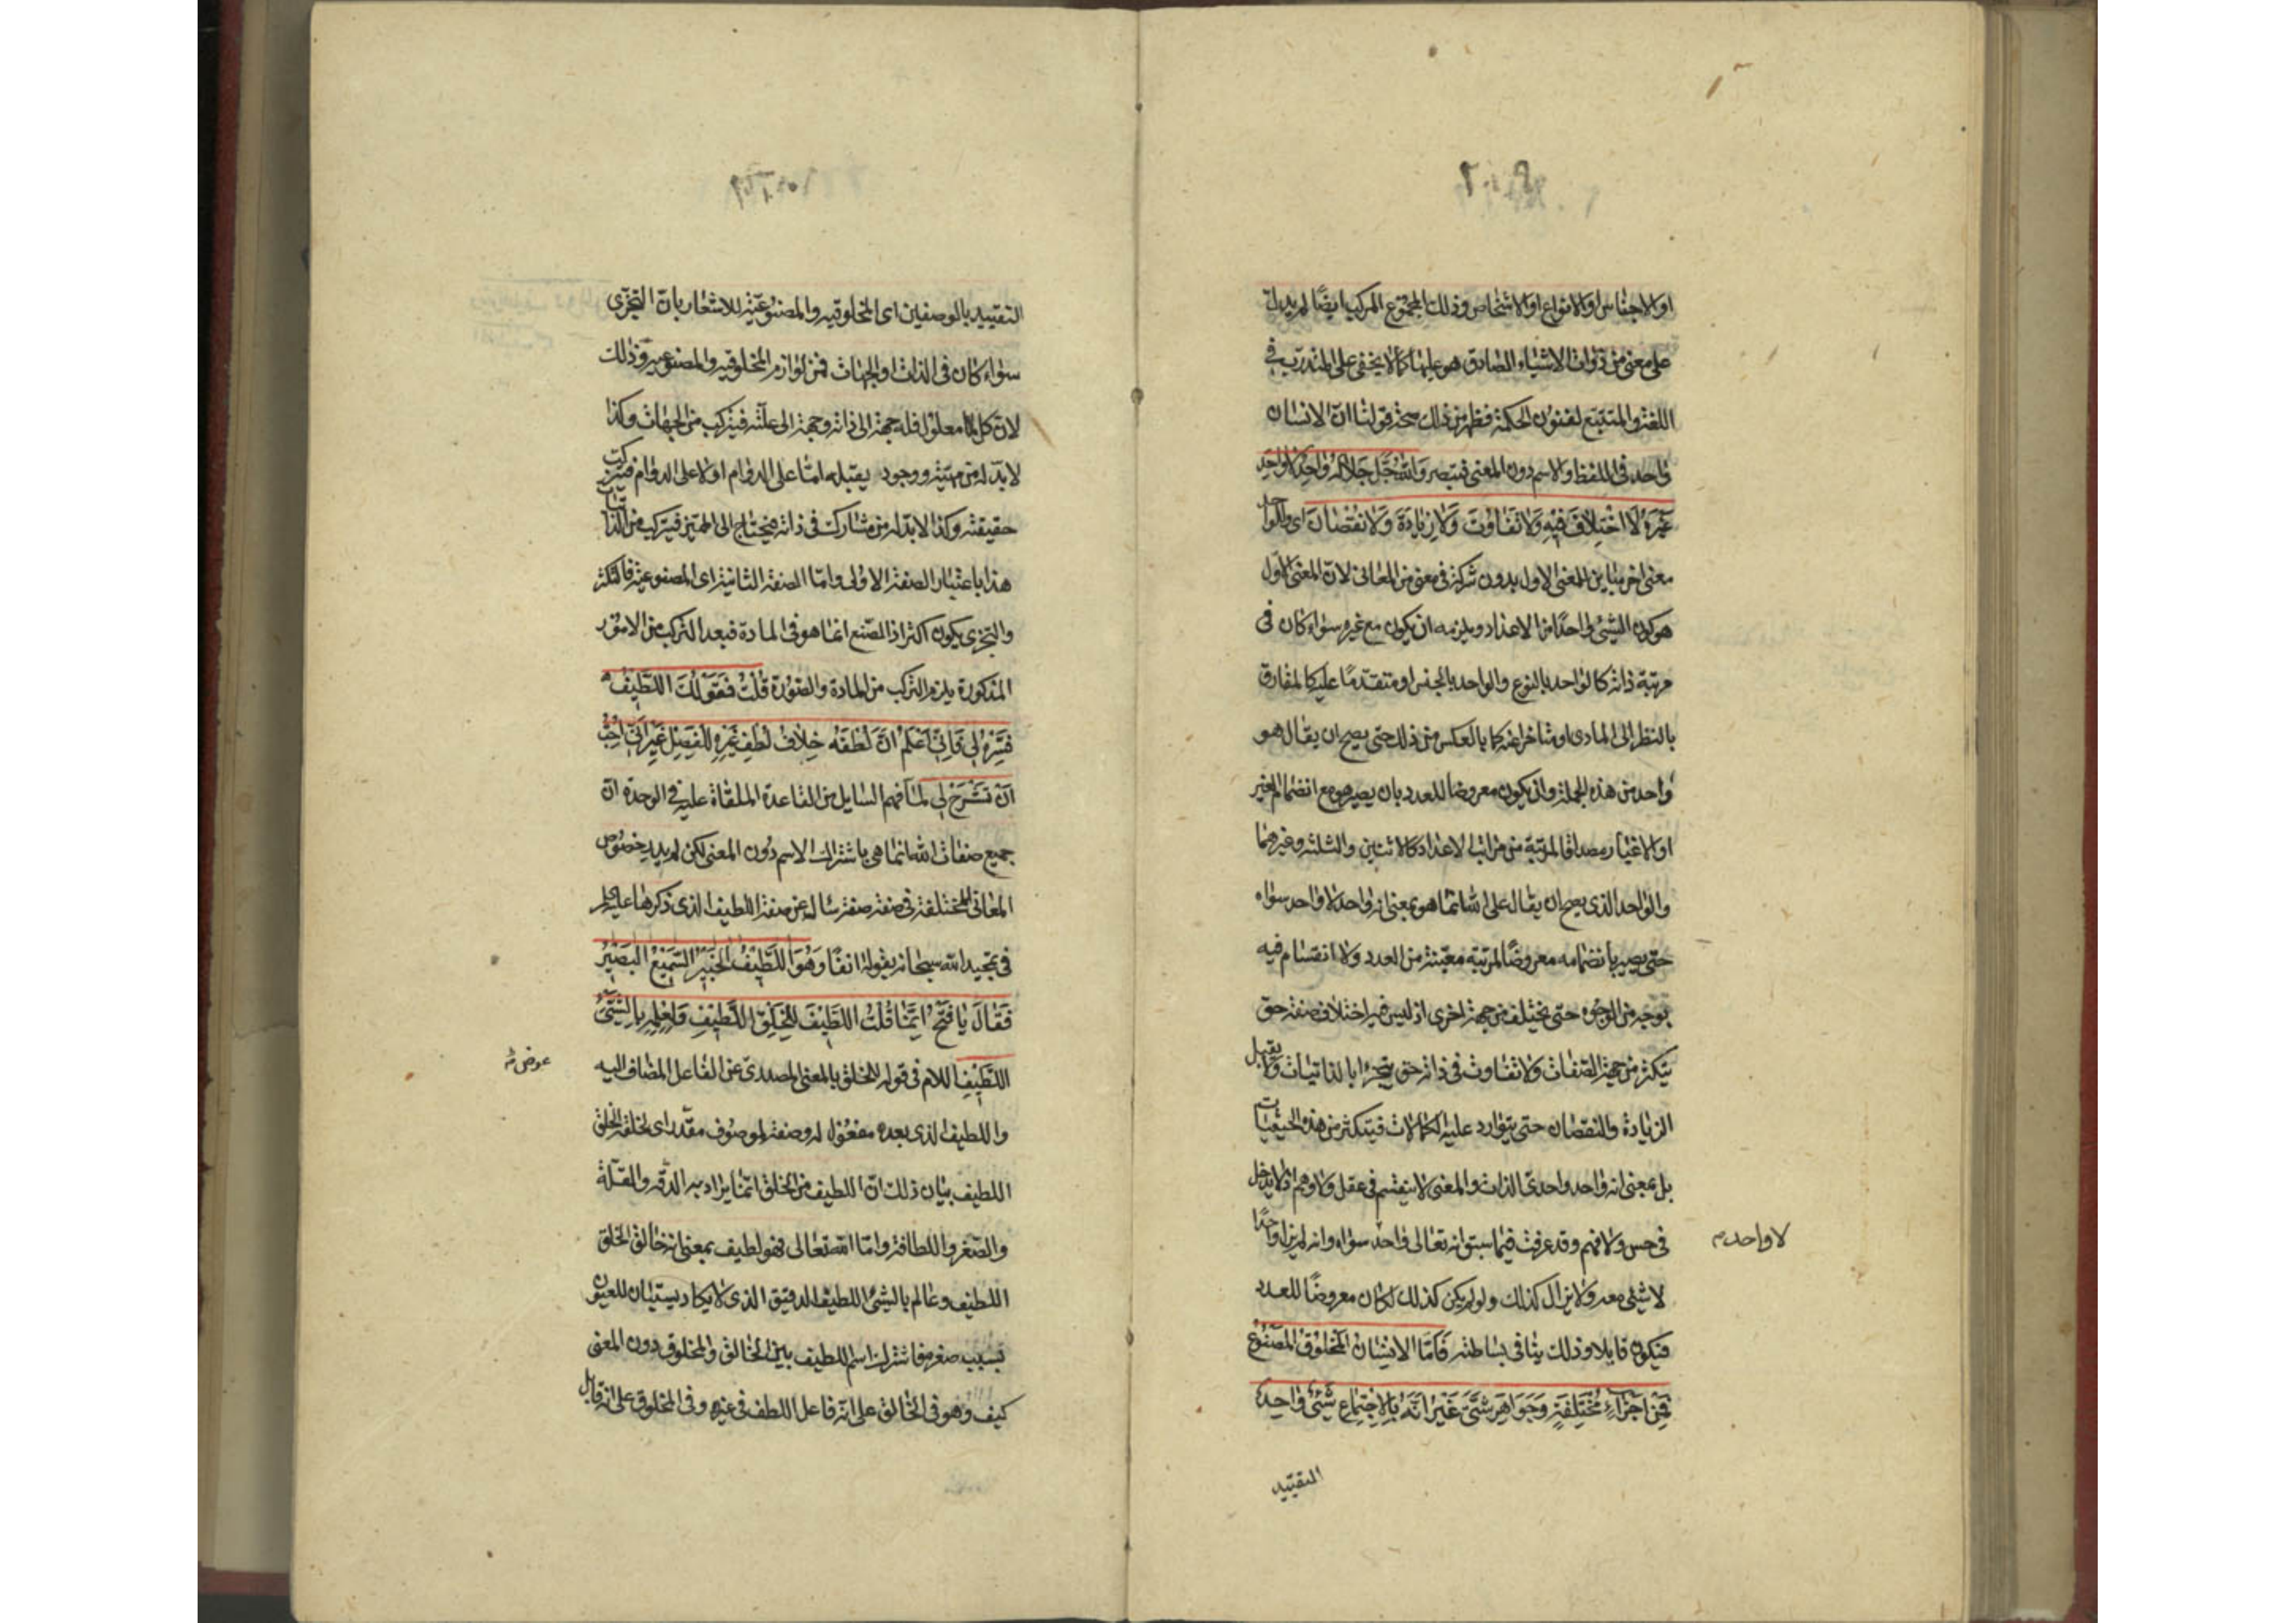 او الاجناس او الانواع او الاشخاص وذلك المجموع المركب ايضًا لم يدلّ
على معنى من ذوات الاشياء الصادق هو عليها كما لا يخفى على المتدرّب في
اللغة والمتتبّع لفنون الحكمة فظهر من ذلك صحّة قولنا انّ الانسان
واحد في اللفظ والاسم دون المعنى فتبصر وَاللهُ جَلَّ جَلَالُهُ وَاحِدٌ لَا وَاحِدَ
غَيْرُهُ لَا اخْتِلَافَ فِيهِ وَلَا تَفَاوُتَ وَلَا زِيَادَةَ وَلَا نُقْصَانَ اى والواحد
معنى اخر مباين للمعنى الاول بدون شركة في معنى من المعانى لانّ المعنى الاول
هو كون الشئ واحدًا من الاعداد ويلزمه ان يكون مع غيره سواء كان في
مرتبة ذاته كالواحد بالنوع والواحد بالجنس او متقدّمًا عليه كالمفارق
بالنظر الى المادى او متاخرا عنه كما بالعكس من ذلك حتى يصح ان يقال هو
واحد من هذه الجملة وان يكون معروضا للعدد بان يصير هو مع انضمام الغير
او الاغيار مصداقا لمرتبة من مراتب الاعداد كالاثنين والثلثة وغيرهما
والواحد الذى يصح ان يقال على الله انما هو بمعنى انه واحد لا واحد سواه
حتى يصير بانضمامه معروضًا لمرتبة معيّنة من العدد ولا انقسام فيه
بوجه من الوجوه حتى يختلف من جهة اخرى اذ ليس فيه اختلاف صفة حتى
يتكثر من جهة الصفات ولا تفاوت في ذاته حتى يتجزء بالذاتيات ولا يقبل
الزيادة والنقصان حتى يتوارد عليه الكمالات فيتكثر من هذه الحيثيات
بل بمعنى انه واحد واحدىّ الذات والمعنى لا ينقسم في عقل ولا وهم اذ لا يدخل
في حس ولا فهم وقد عرفت فيما سبق انه تعالى واحد سواه وانه لم يزل واحدًا
لا واحد م
لا شئ معه ولا يزال كذلك ولو لم يكن كذلك لكان معروضًا للعدد
فيكون قابلا وذلك ينافى بساطته فَاَمَّا الاِنْسَانُ المَخْلُوقُ المَصْنُوعُ
فَمِنْ اَجْزَاءٍ مُخْتَلِفَةٍ وَجَوَاهِرَ شَتَّى غَيْرَ اَنَّهُ بِالاِجْتِمَاعِ شَئٌ وَاحِدٌ
التقييد
التقييد بالوصفين اى المخلوقية والمصنوعيّة للاشعار بانّ التجزّى
سواء كان في الذات او الجهات فمن لوازم المخلوقية والمصنوعية وذلك
لان كل ما معلول فله جهة الى ذاته وجهة الى علّته فيتركب من الجهات وكذا
لابدّ له من مهيّة ووجود يقبله امّا على الدوام او لا على الدوام فيتركب
حقيقته وكذا لابدّ له من مشارك في ذاته فيحتاج الى المميّز فيتركب من الذاتيات
هذا باعتبار الصفة الاولى وامّا الصفة الثانية اى المصنوعية فالتكثر
والتجزى يكون اكثر اذ الصّنع انما هو في المادة فبعد التركب من الامور
المذكورة يلزم التركب من المادة والصورة قُلْتُ فَقَوْلُكَ اللَّطِيفُ
فَسِّرْهُ لِى فَاِنِّى اَعْلَمُ اَنَّ لُطْفَهُ خِلَافُ لُطْفِ غَيْرِهِ لِلْفَصْلِ غَيْرَ اَنِّى اُحِبُّ
اَنْ تَشْرَحَ لِى لمّا فهم السايل من القاعدة الملقاة عليه في الوحدة ان
جميع صفات الله انما هى باشتراك الاسم دون المعنى لكن لم يدر خصوص
المعانى المختلفة في صفة صفة سأله عن صفة اللطيف الذى ذكرها عليه السلم
في تمجيد الله سبحانه بقوله انفًا وَهُوَ اللَّطِيفُ الخَبِيرُ السَّمِيعُ البَصِيرُ
فَقَالَ يَا فَتْحُ اِنَّمَا قُلْتُ اللَّطِيفُ لِلْخَلْقِ اللَّطِيفِ وَلِعِلْمِهِ بِالشَّئِ
اللَّطِيفِ اللام في قوله للخلق بالمعنى المصدرى عن الفاعل المضاف اليه
عوض
واللطيف الذى بعده مفعول له وصفة لموصوف مقدّر اى لخلقه الخلق
اللطيف بيان ذلك انّ اللطيف من الخلق انّما يراد به الدقّة والقلّة
والصّغر واللطافة وامّا الله تعالى فهو لطيف بمعنى انه خالق الخلق
اللطيف وعالم بالشئ اللطيف الدقيق الذى لا يكاد يستبان للعيون
بسبب صغره فاشترك اسم اللطيف بين الخالق والمخلوق دون المعنى
كيف وهو في الخالق على انّه فاعل اللطف في غيره وفى المخلوق على انه قابل